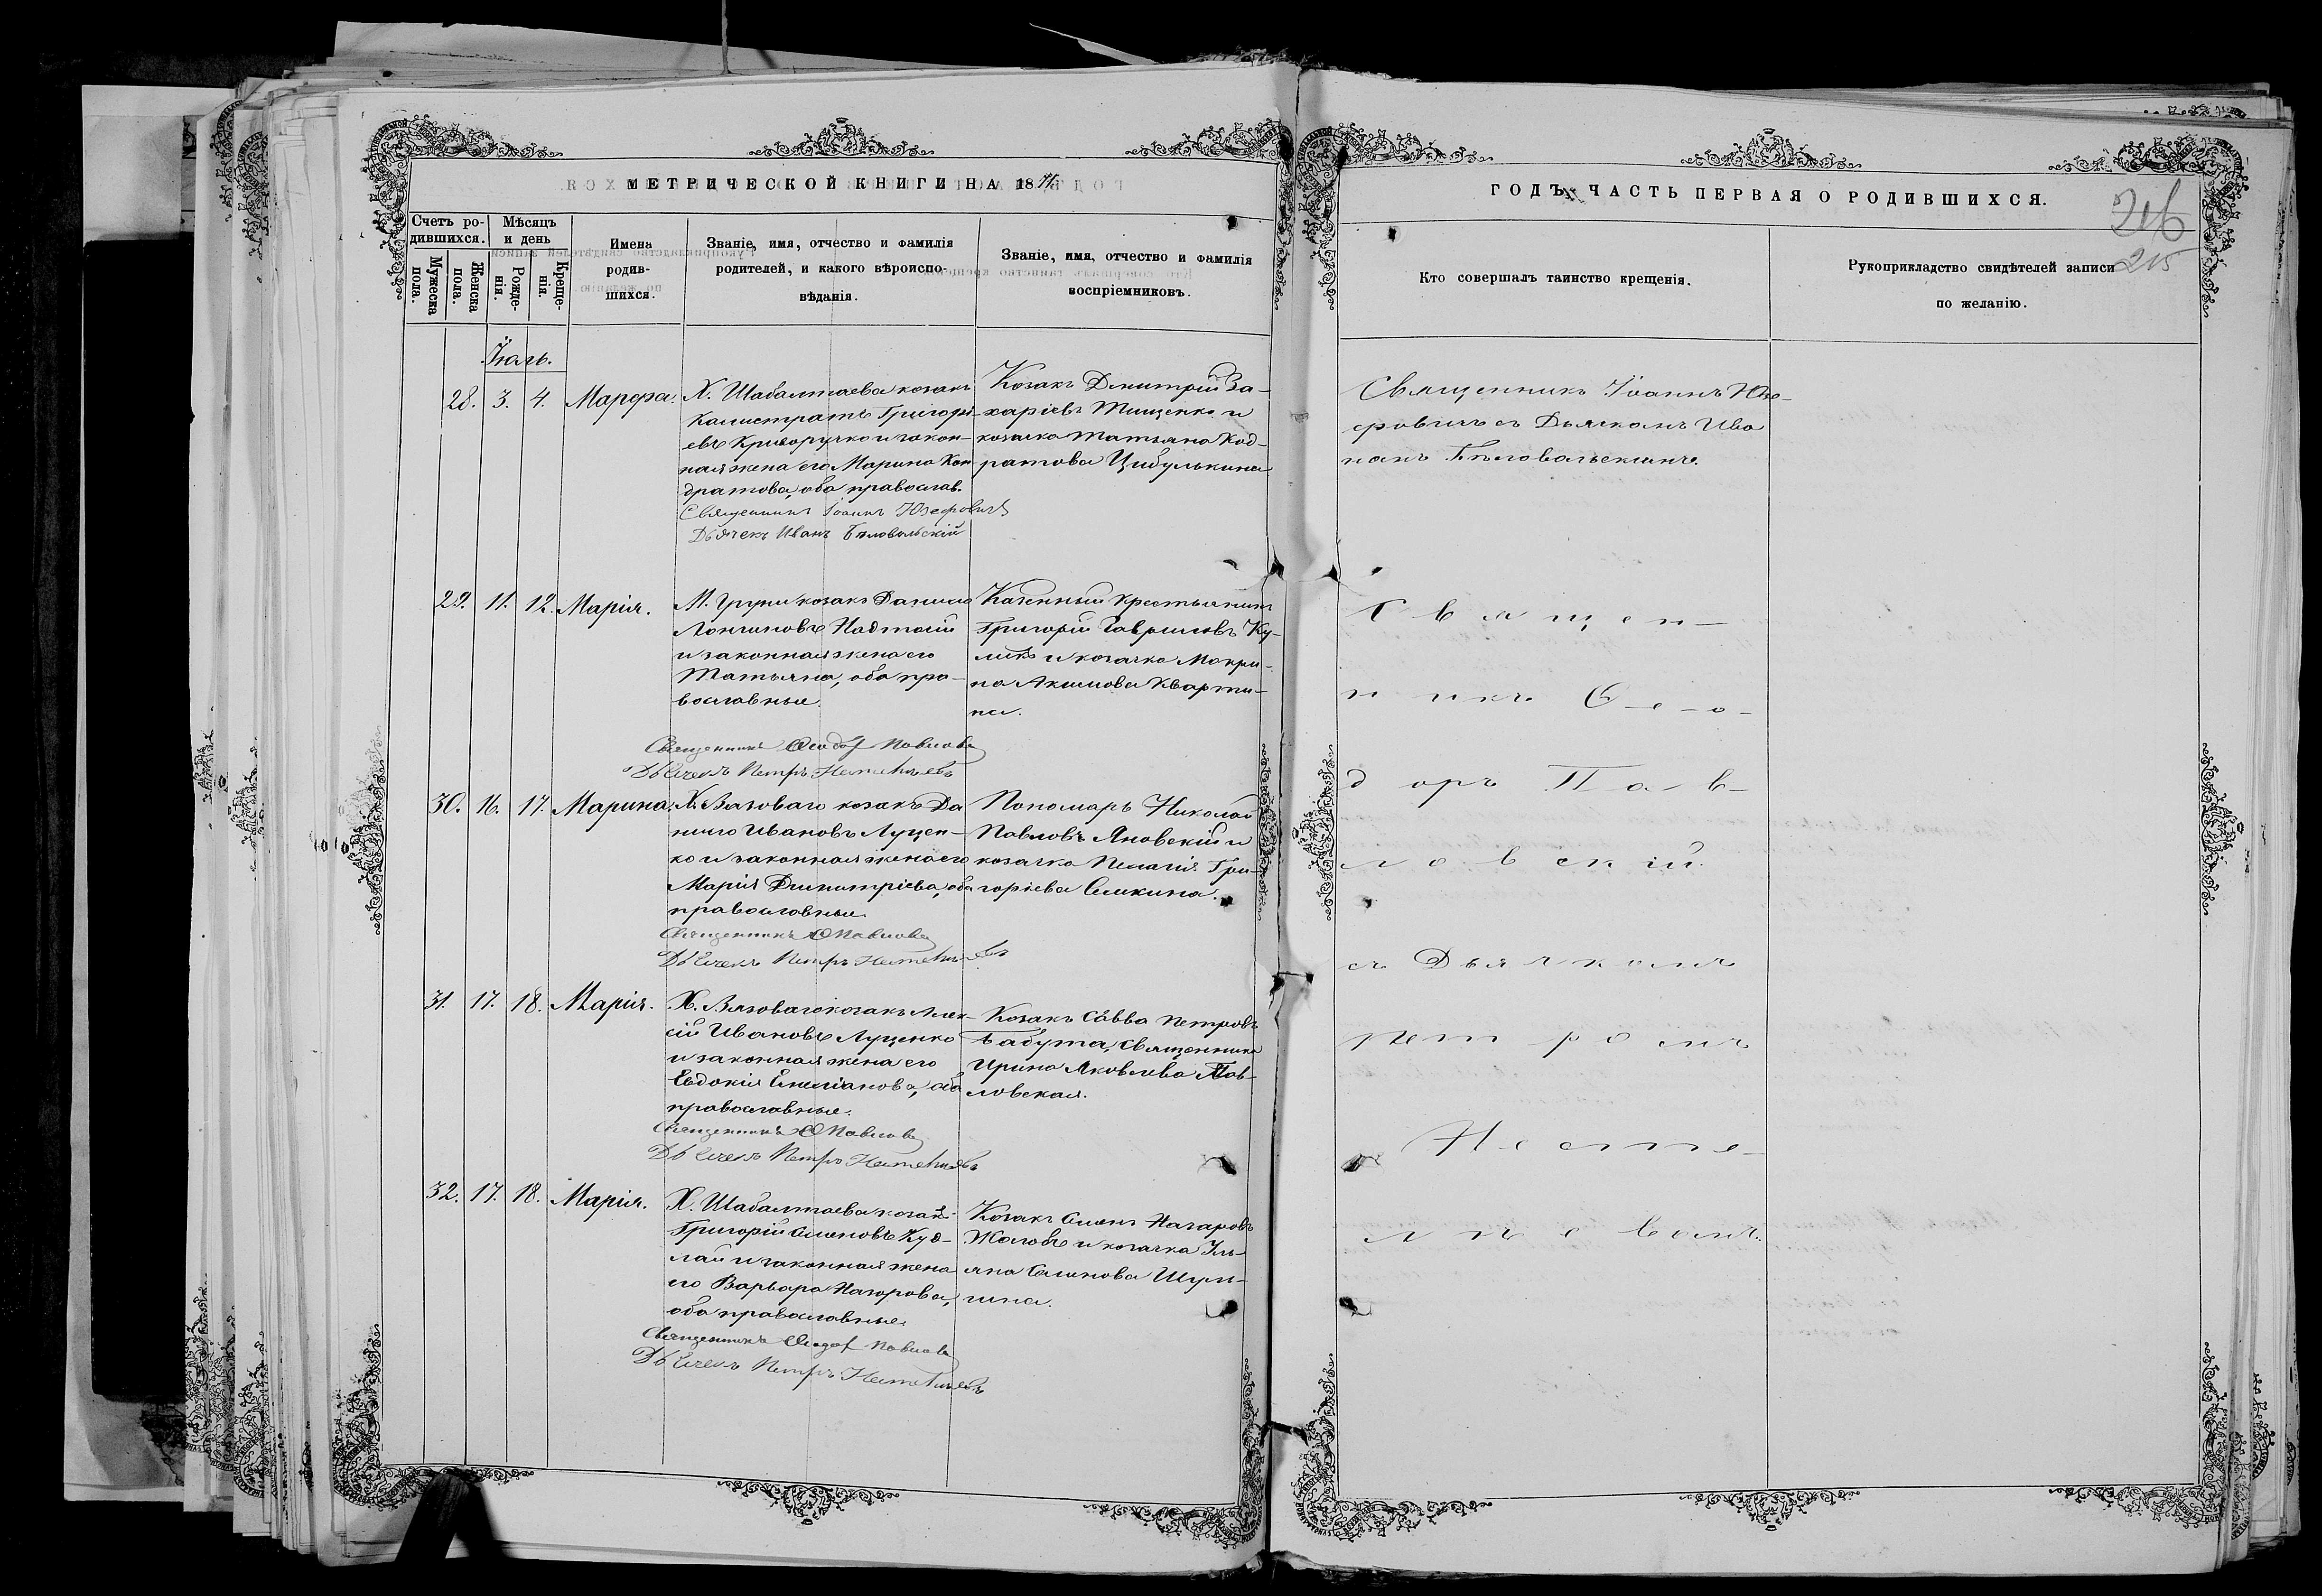 МЕТРИЧЕСКОЙ КНИГИ НА 18
Счетъ ро-
дившихся.
Мужеска
пола.
Женска
пола.
Мѣсяцъ
и день
Рожде-
нія.
Креще-
нія.
Имена
родив-
шихся.
Званіе, имя, отчество и фамилія
родителей, и какого вѣроиспо-
вѣданія.
Званіе, имя, отчество и фамилія
воспріемниковъ.
Іюль.
28. 3. 4. Марфа.
Х. Шабалтаева козакъ
Калистратъ Григорі-
евъ Криворучко и закон-
ная жена его Марина Кон-
дратова, оба православ.
Священникъ Іоаннъ Юзефовичъ
Дьячекъ Иванъ Бѣловольскій
Козакъ Дмитрій За-
харіевъ Тищенко и
козачка Татьяна Код-
ратова Цибулькина
29. 11. 12. Марія.
М. Груни козакъ Данило
Лонгиновъ
и законная жена его
Татьяна, оба пра-
вославные.
Священникъ Ѳеодор Павлов
Дьячекъ Петръ
Казенный крестьянинъ
Григорій Гавриловъ Ку-
ликъ и козачка Макри-
на Акимова Кварти-
на.
30. 16. 17. Марина.
Х. Вязоваго козакъ Да
нило Ивановъ Луцен-
ко и законная жена его
Марія Димитріева, оба
православные.
Священникъ Ѳ Павлов
Дьячекъ Петръ
Пономаръ Николай
Павловъ Яновскій и
козачка Пелагія Гри-
горіева Сликина.
31. 17. 18. Марія.
Х. Вязоваго козакъ Алек-
сій Ивановъ Луценко
и законная жена его
Евдокія Емеліанова, оба
православные.
Священникъ Ѳ Павлов
Дьячекъ Петръ
Козакъ Савва Петровъ
Бабута, священника
Ирина Яковлева Пав-
ловская.
32. 17. 18. Марія.
Х. Шабалтаева козакъ
Григорій Семеновъ Куд-
лай и законная жена
его Варвара Назарова,
оба православные.
Священникъ Ѳеодор Павлов
Дьячекъ Петръ
Козакъ Семенъ Назаровъ
Жолобъ и козачка Улі-
яна Семенова Шум-
ина.
ГОДЪ, ЧАСТЬ ПЕРВАЯ О РОДИВШИХСЯ.
216
215
Кто совершалъ таинство крещенія.
Рукоприкладство свидѣтелей записи
по желанію.
Священникъ Іоаннъ Юзе-
фовичъ съ Дьячкомъ Ива
номъ Бѣловольскимъ.
Священ-
никъ Ѳ-е-о-
доръ Пав-
ловскій
съ Дьячкомъ
Петромъ